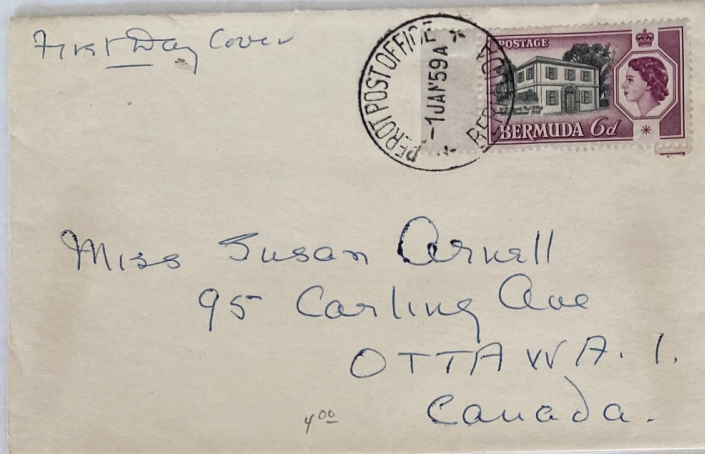 First Day Cover
PEROT POST OFFICE
-1 JAN 59 A
BERMUDA
POSTAGE
BERMUDA 6d
Miss Susan Arnell
95 Carling Ave
OTTAWA. 1.
Canada.
4 00